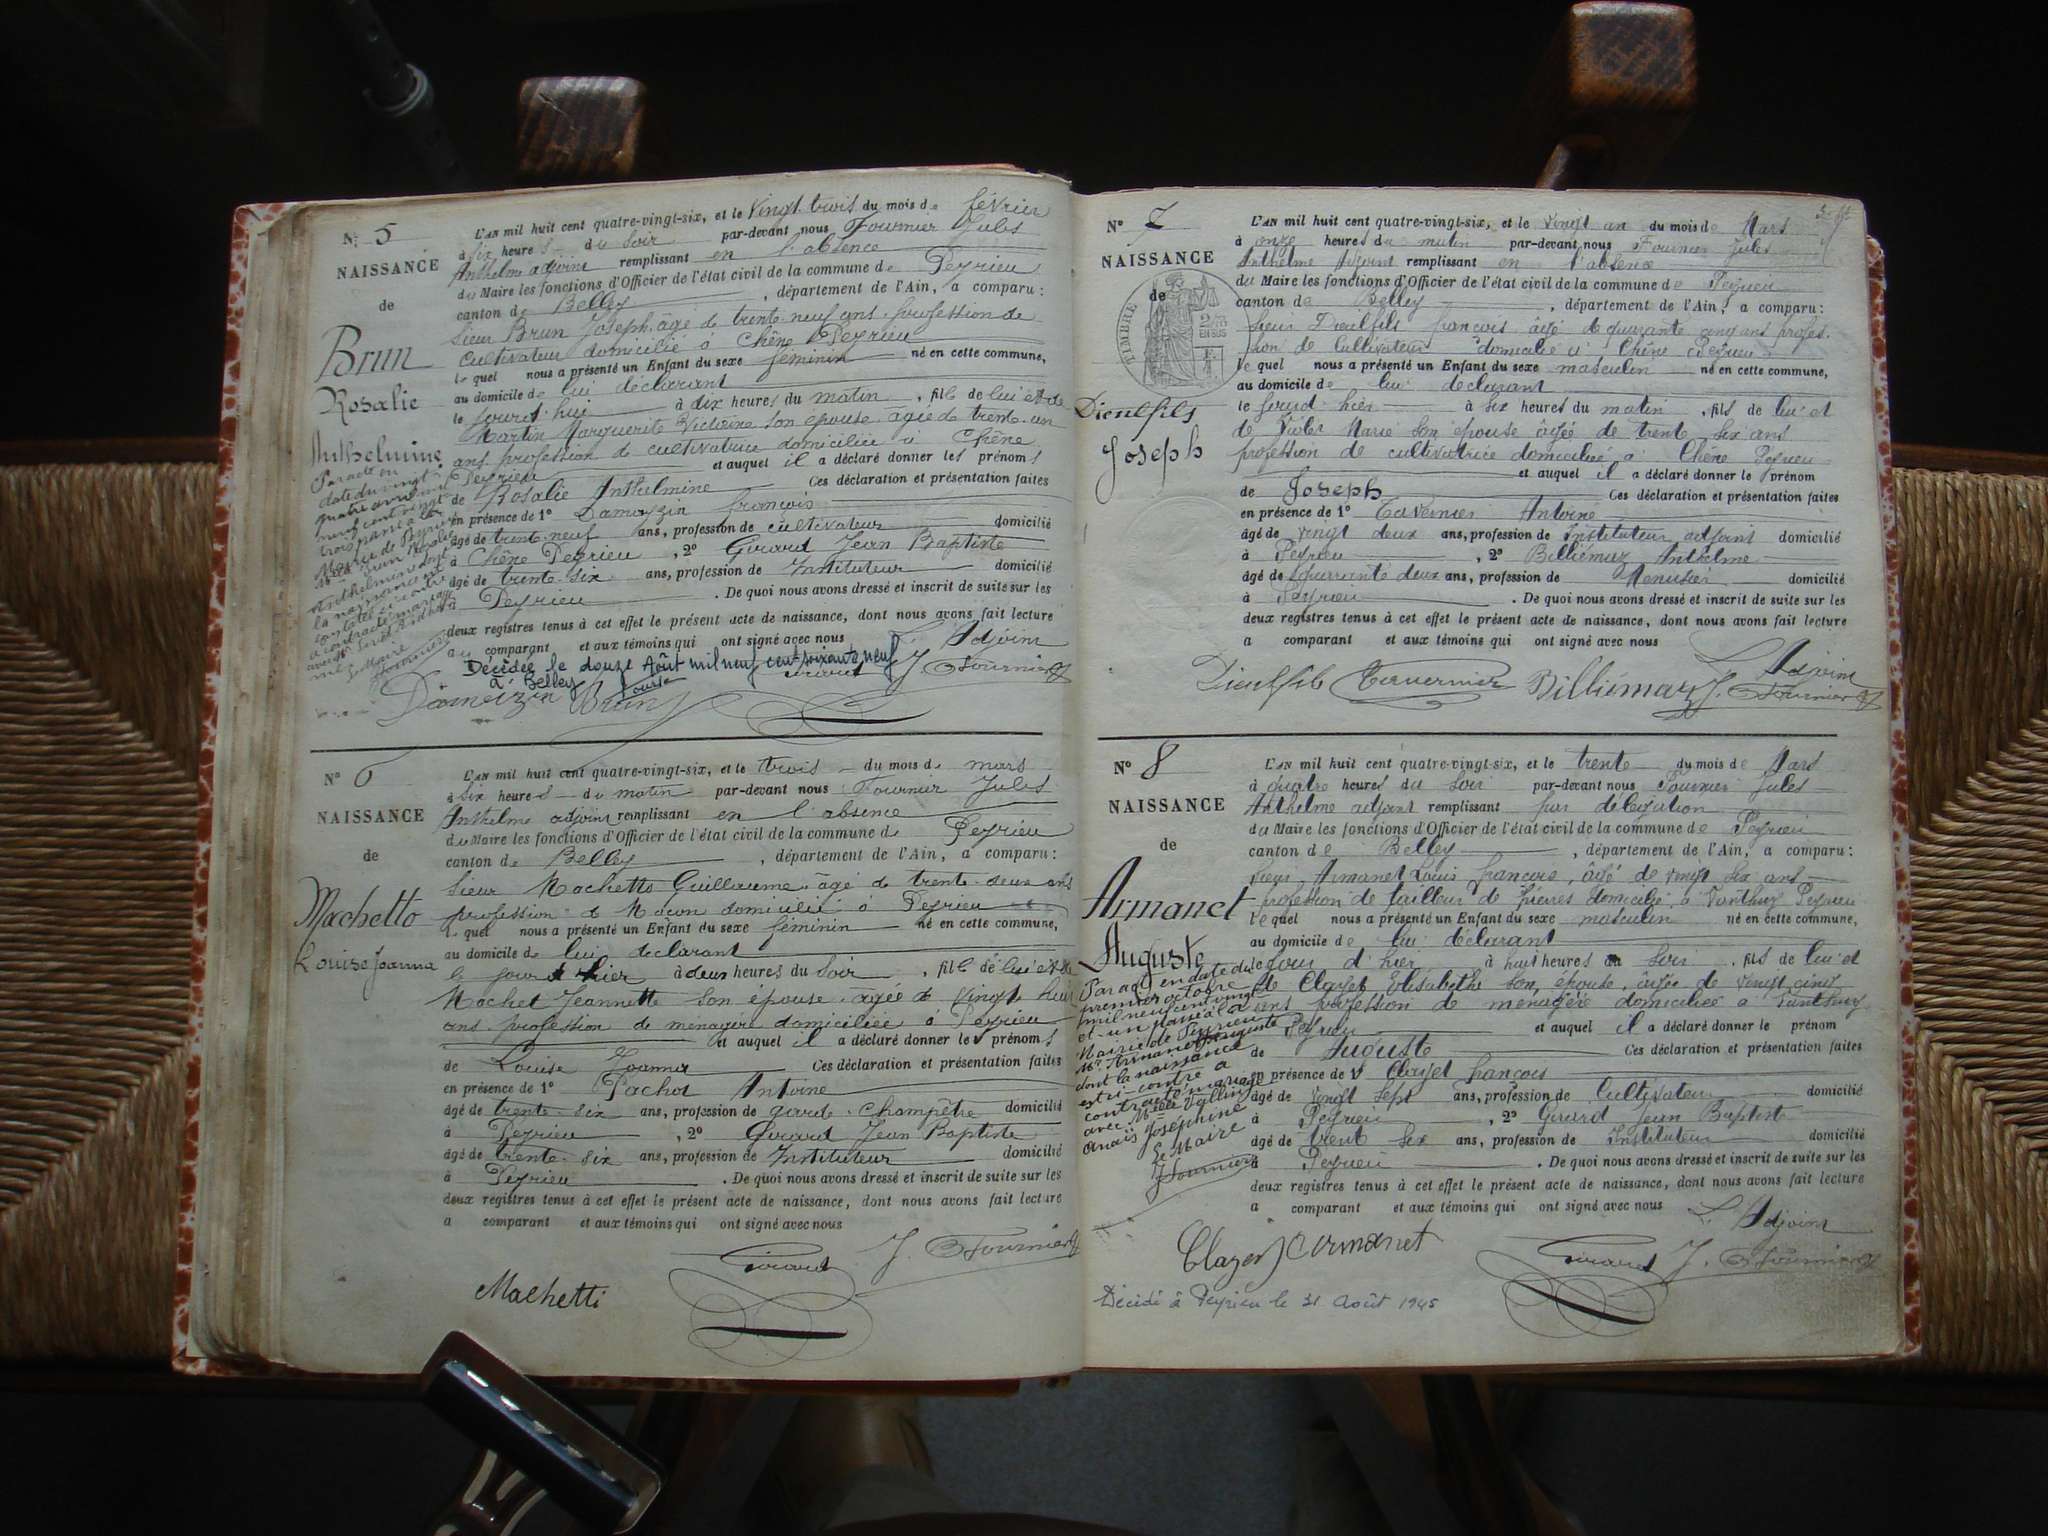 N° 5
NAISSANCE
de
Brun
Rosalie
Anthelmine
L'AN mil huit cent quatre-vingt-six, et le Vingt trois du mois de février
à six heures du soir par-devant nous Fournier Jules
Anthelme adjoint remplissant en l'absence
du Maire les fonctions d'Officier de l'état civil de la commune de Peyrieu
canton de Belley, département de l'Ain, a comparu:
Sieur Brun Joseph, âgé de trente neuf ans, profession de
Cultivateur domicilié à Chêne Peyrieu
lequel nous a présenté un Enfant du sexe féminin né en cette commune,
au domicile de lui déclarant
le jourd'hui à dix heures du matin, fille de lui et de
Martin Marguerite Victoire son épouse âgée de trente un
ans profession de cultivatrice domiciliée à Chêne
Peyrieu et auquel il a déclaré donner les prénoms
de Rosalie Anthelmine Ces déclaration et présentation faites
en présence de 1° Dameyzin françois
âgé de trente neuf ans, profession de cultivateur domicilié
à Chêne Peyrieu, 2° Girard Jean Baptiste
âgé de trente six ans, profession de Instituteur domicilié
à Peyrieu. De quoi nous avons dressé et inscrit de suite sur les
deux registres tenus à cet effet le présent acte de naissance, dont nous avons fait lecture
au comparant et aux témoins qui ont signé avec nous L. Adjoint
Par acte en
date du vingt
quatre avril mil
neuf cent vingt
trois passé à la
Mairie de Peyrieu
Brun Rosalie
Anthelmine dont
la naissance est
constatée ci-contre
a contracté mariage
avec
Le Maire
Décédée le douze Août mil neuf cent soixante neuf
à Belley
Dameizin Brun Girard J. Fournier
N° 6
NAISSANCE
de
Machetto
Louise Joanna
L'AN mil huit cent quatre-vingt-six, et le trois du mois de mars
à six heures du matin par-devant nous Fournier Jules
Anthelme adjoint remplissant en l'absence
du Maire les fonctions d'Officier de l'état civil de la commune de Peyrieu
canton de Belley, département de l'Ain, a comparu:
Sieur Machetto Guillaume, âgé de trente deux ans
profession de Maçon domicilié à Peyrieu
lequel nous a présenté un Enfant du sexe féminin né en cette commune,
au domicile de lui déclarant
le jour d'hier à deux heures du soir, fille de lui et de
Machet Jeannette son épouse, âgée de vingt huit
ans profession de ménagère domiciliée à Peyrieu
et auquel il a déclaré donner les prénoms
de Louise Joanna Ces déclaration et présentation faites
en présence de 1° Pachot Antoine
âgé de trente six ans, profession de garde champêtre domicilié
à Peyrieu, 2° Girard Jean Baptiste
âgé de trente six ans, profession de Instituteur domicilié
à Peyrieu. De quoi nous avons dressé et inscrit de suite sur les
deux registres tenus à cet effet le présent acte de naissance, dont nous avons fait lecture
a comparant et aux témoins qui ont signé avec nous
Machetti Girard J. Fournier
N° 7
NAISSANCE
de
TIMBRE
EN SUS
Dieulfils
Joseph
L'AN mil huit cent quatre-vingt-six, et le vingt un du mois de Mars
à onze heures du matin par-devant nous Fournier Jules
Anthelme Adjoint remplissant en l'absence
du Maire les fonctions d'Officier de l'état civil de la commune de Peyrieu
canton de Belley, département de l'Ain, a comparu:
Sieur Dieulfils françois âgé de quarante cinq ans profes-
sion de Cultivateur domicilié à Chêne Peyrieu
lequel nous a présenté un Enfant du sexe masculin né en cette commune,
au domicile de lui déclarant
le jourd'hier à six heures du matin, fils de lui et
de Marie son épouse âgée de trente six ans
profession de cultivatrice domiciliée à Chêne Peyrieu
et auquel il a déclaré donner le prénom
de Joseph Ces déclaration et présentation faites
en présence de 1° Tavernier Antoine
âgé de vingt deux ans, profession de Instituteur adjoint domicilié
à Peyrieu, 2° Billiémaz Anthelme
âgé de quarante deux ans, profession de Menuisier domicilié
à Peyrieu. De quoi nous avons dressé et inscrit de suite sur les
deux registres tenus à cet effet le présent acte de naissance, dont nous avons fait lecture
a comparant et aux témoins qui ont signé avec nous
L. Adjoint
Dieulfils Tavernier Billiémaz J. Fournier
N° 8
NAISSANCE
de
Armanet
Auguste
L'AN mil huit cent quatre-vingt-six, et le trente du mois de Mars
à quatre heures du soir par-devant nous Fournier Jules
Anthelme adjoint remplissant par délégation
du Maire les fonctions d'Officier de l'état civil de la commune de Peyrieu
canton de Belley, département de l'Ain, a comparu:
Sieur Armanet Louis françois, âgé de vingt six ans
profession de tailleur de pierres domicilié à Vanthuy Peyrieu
lequel nous a présenté un Enfant du sexe masculin né en cette commune,
au domicile de lui déclarant
le jour d'hier à huit heures du soir, fils de lui et
de Clayet Elisabethe son épouse, âgée de vingt cinq
ans profession de ménagère domiciliée à Vanthuy
Peyrieu et auquel il a déclaré donner le prénom
de Auguste Ces déclaration et présentation faites
en présence de 1° Clayet françois
âgé de vingt sept ans, profession de Cultivateur domicilié
à Peyrieu, 2° Girard Jean Baptiste
âgé de trent six ans, profession de Instituteur domicilié
à Peyrieu. De quoi nous avons dressé et inscrit de suite sur les
deux registres tenus à cet effet le présent acte de naissance, dont nous avons fait lecture
a comparant et aux témoins qui ont signé avec nous
L. Adjoint
Par acte en date du
premier octobre
mil neuf cent vingt
et un passé à la
Mairie de Peyrieu
Mr Armanet Auguste
dont la naissance
est ci-contre a
contracté mariage
avec Melle
Anaïs Joséphine
Le Maire
J Fournier
Clayet Armanet Girard J. Fournier
Décédé à Peyrieu le 31 Août 1945